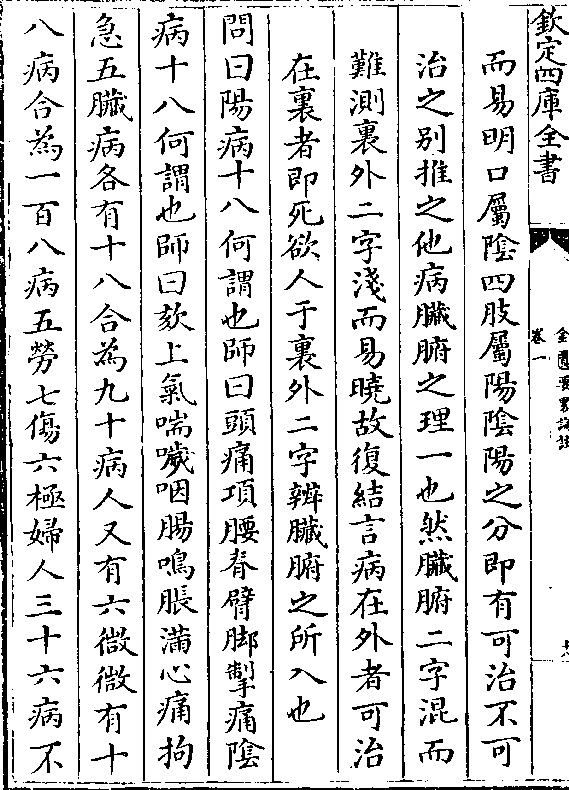 欽定四庫全書
卷一
而易明口屬隂四肢屬陽隂陽之分即有可治不可
治之别推之他病臟腑之理一也然臟腑二字混而
難測裏外二字淺而易曉故復結言病在外者可治
在裏者即死欲人于裏外二字辨臟腑之所入也
問曰陽病十八何謂也師曰頭痛項腰脊臂脚掣痛隂
病十八何謂也師曰欬上氣喘噦咽腸鳴脹滿心痛拘
急五臟病各有十八合為九十病人又有六微微有十
八病合為一百八病五勞七傷六極婦人三十六病不